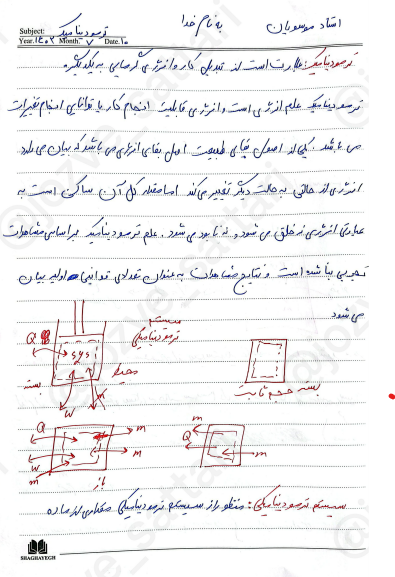 به نام خدا
استاد موسویان
Subject: ترمودینامیک
Year. ۱۴۰۳ Month. ۷ Date. ۱۰
ترمودینامیک: عبارت است از تبدیل کار و انرژی گرمایی به یکدیگر.
ترمودینامیک علم انرژی است و انرژی قابلیت انجام کار یا توانایی انجام تغییرات
می باشد. یکی از اصول بقای طبیعت اصل بقای انرژی می باشد که بیان می دارد
انرژی از حالتی به حالت دیگر تغییر می کند اما مقدار کل آن ساکن است به
عبارتی انرژی نه خلق می شود و نه نابود می شود. علم ترمودینامیک بر اساس مشاهدات
تجربی بنا شده است و نتایج مشاهدات به عنوان تعدادی قوانین اولیه بیان
می شود
سیستم
ترمودینامیکی
Q
sys
محیط
بسته
W
m
بسته حجم ثابت
Q
m
W
m
m
باز
m
Q
m
سیستم ترمودینامیکی: منظور از سیستم ترمودینامیکی مقداری از ماده
SHAGHAYEGH